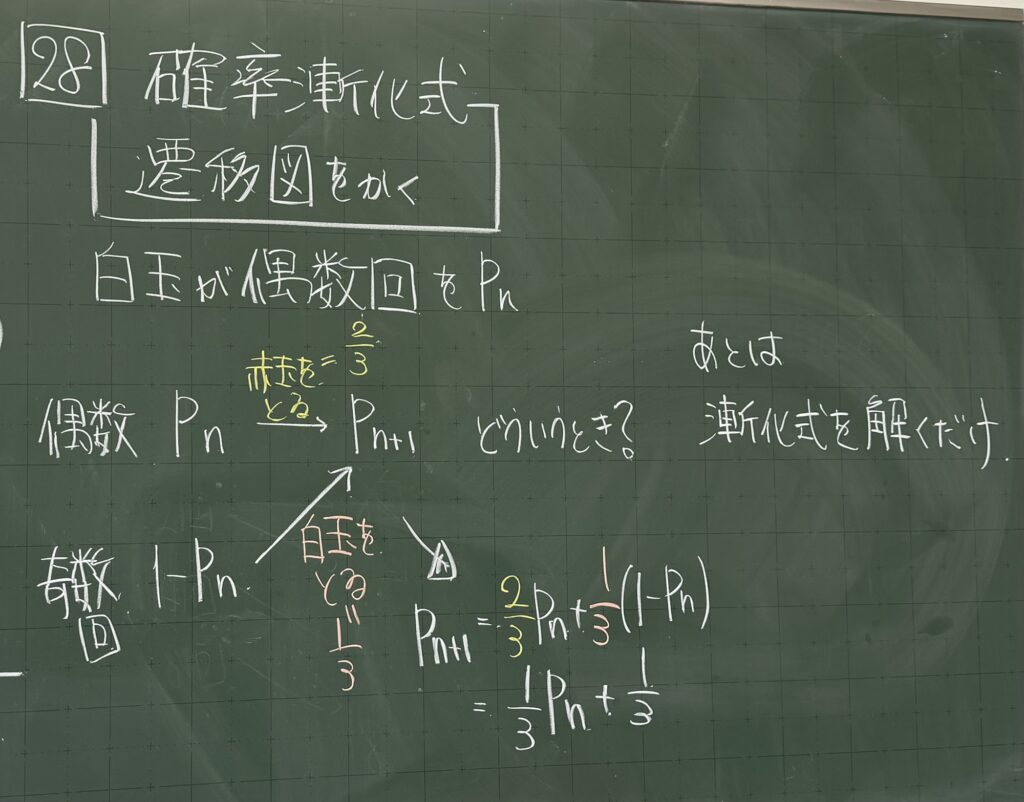 28 確率漸化式
遷移図をかく
白玉が偶数回を Pn
赤玉をとる = 2/3
偶数 Pn → Pn+1 どういうとき?
あとは
漸化式を解くだけ.
奇数回 1-Pn
白玉をとる = 1/3
Pn+1 = 2/3 Pn + 1/3 (1-Pn)
= 1/3 Pn + 1/3